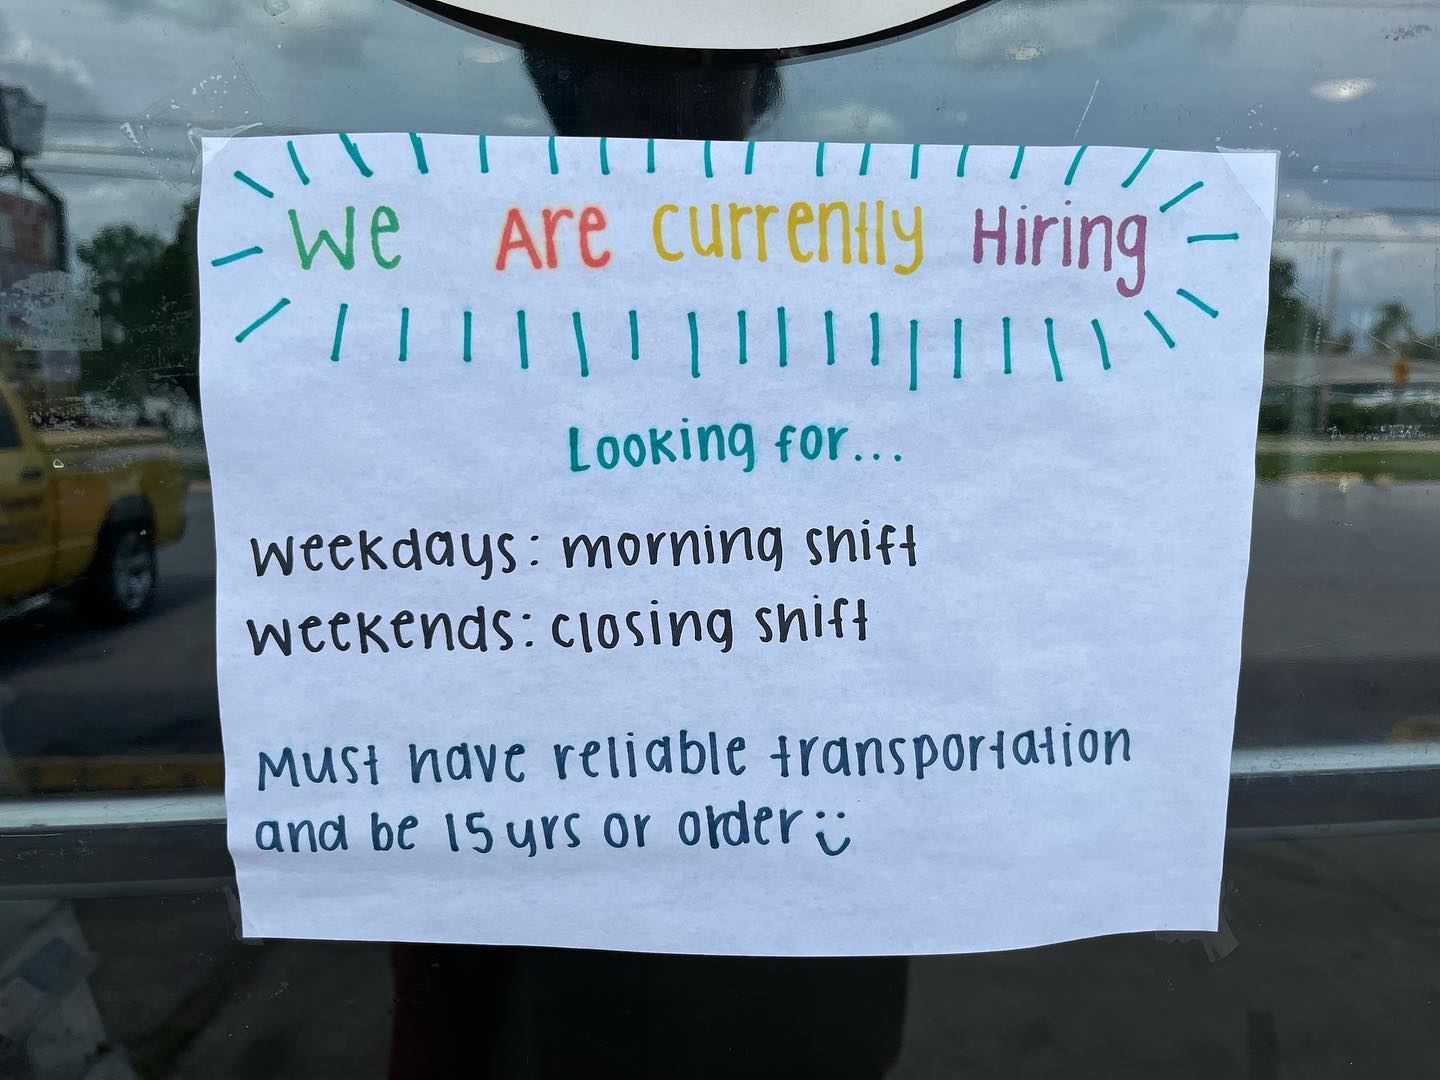 We Are currently Hiring
Looking for...
weekdays: morning shift
weekends: closing shift
Must have reliable transportation
and be 15 yrs or order